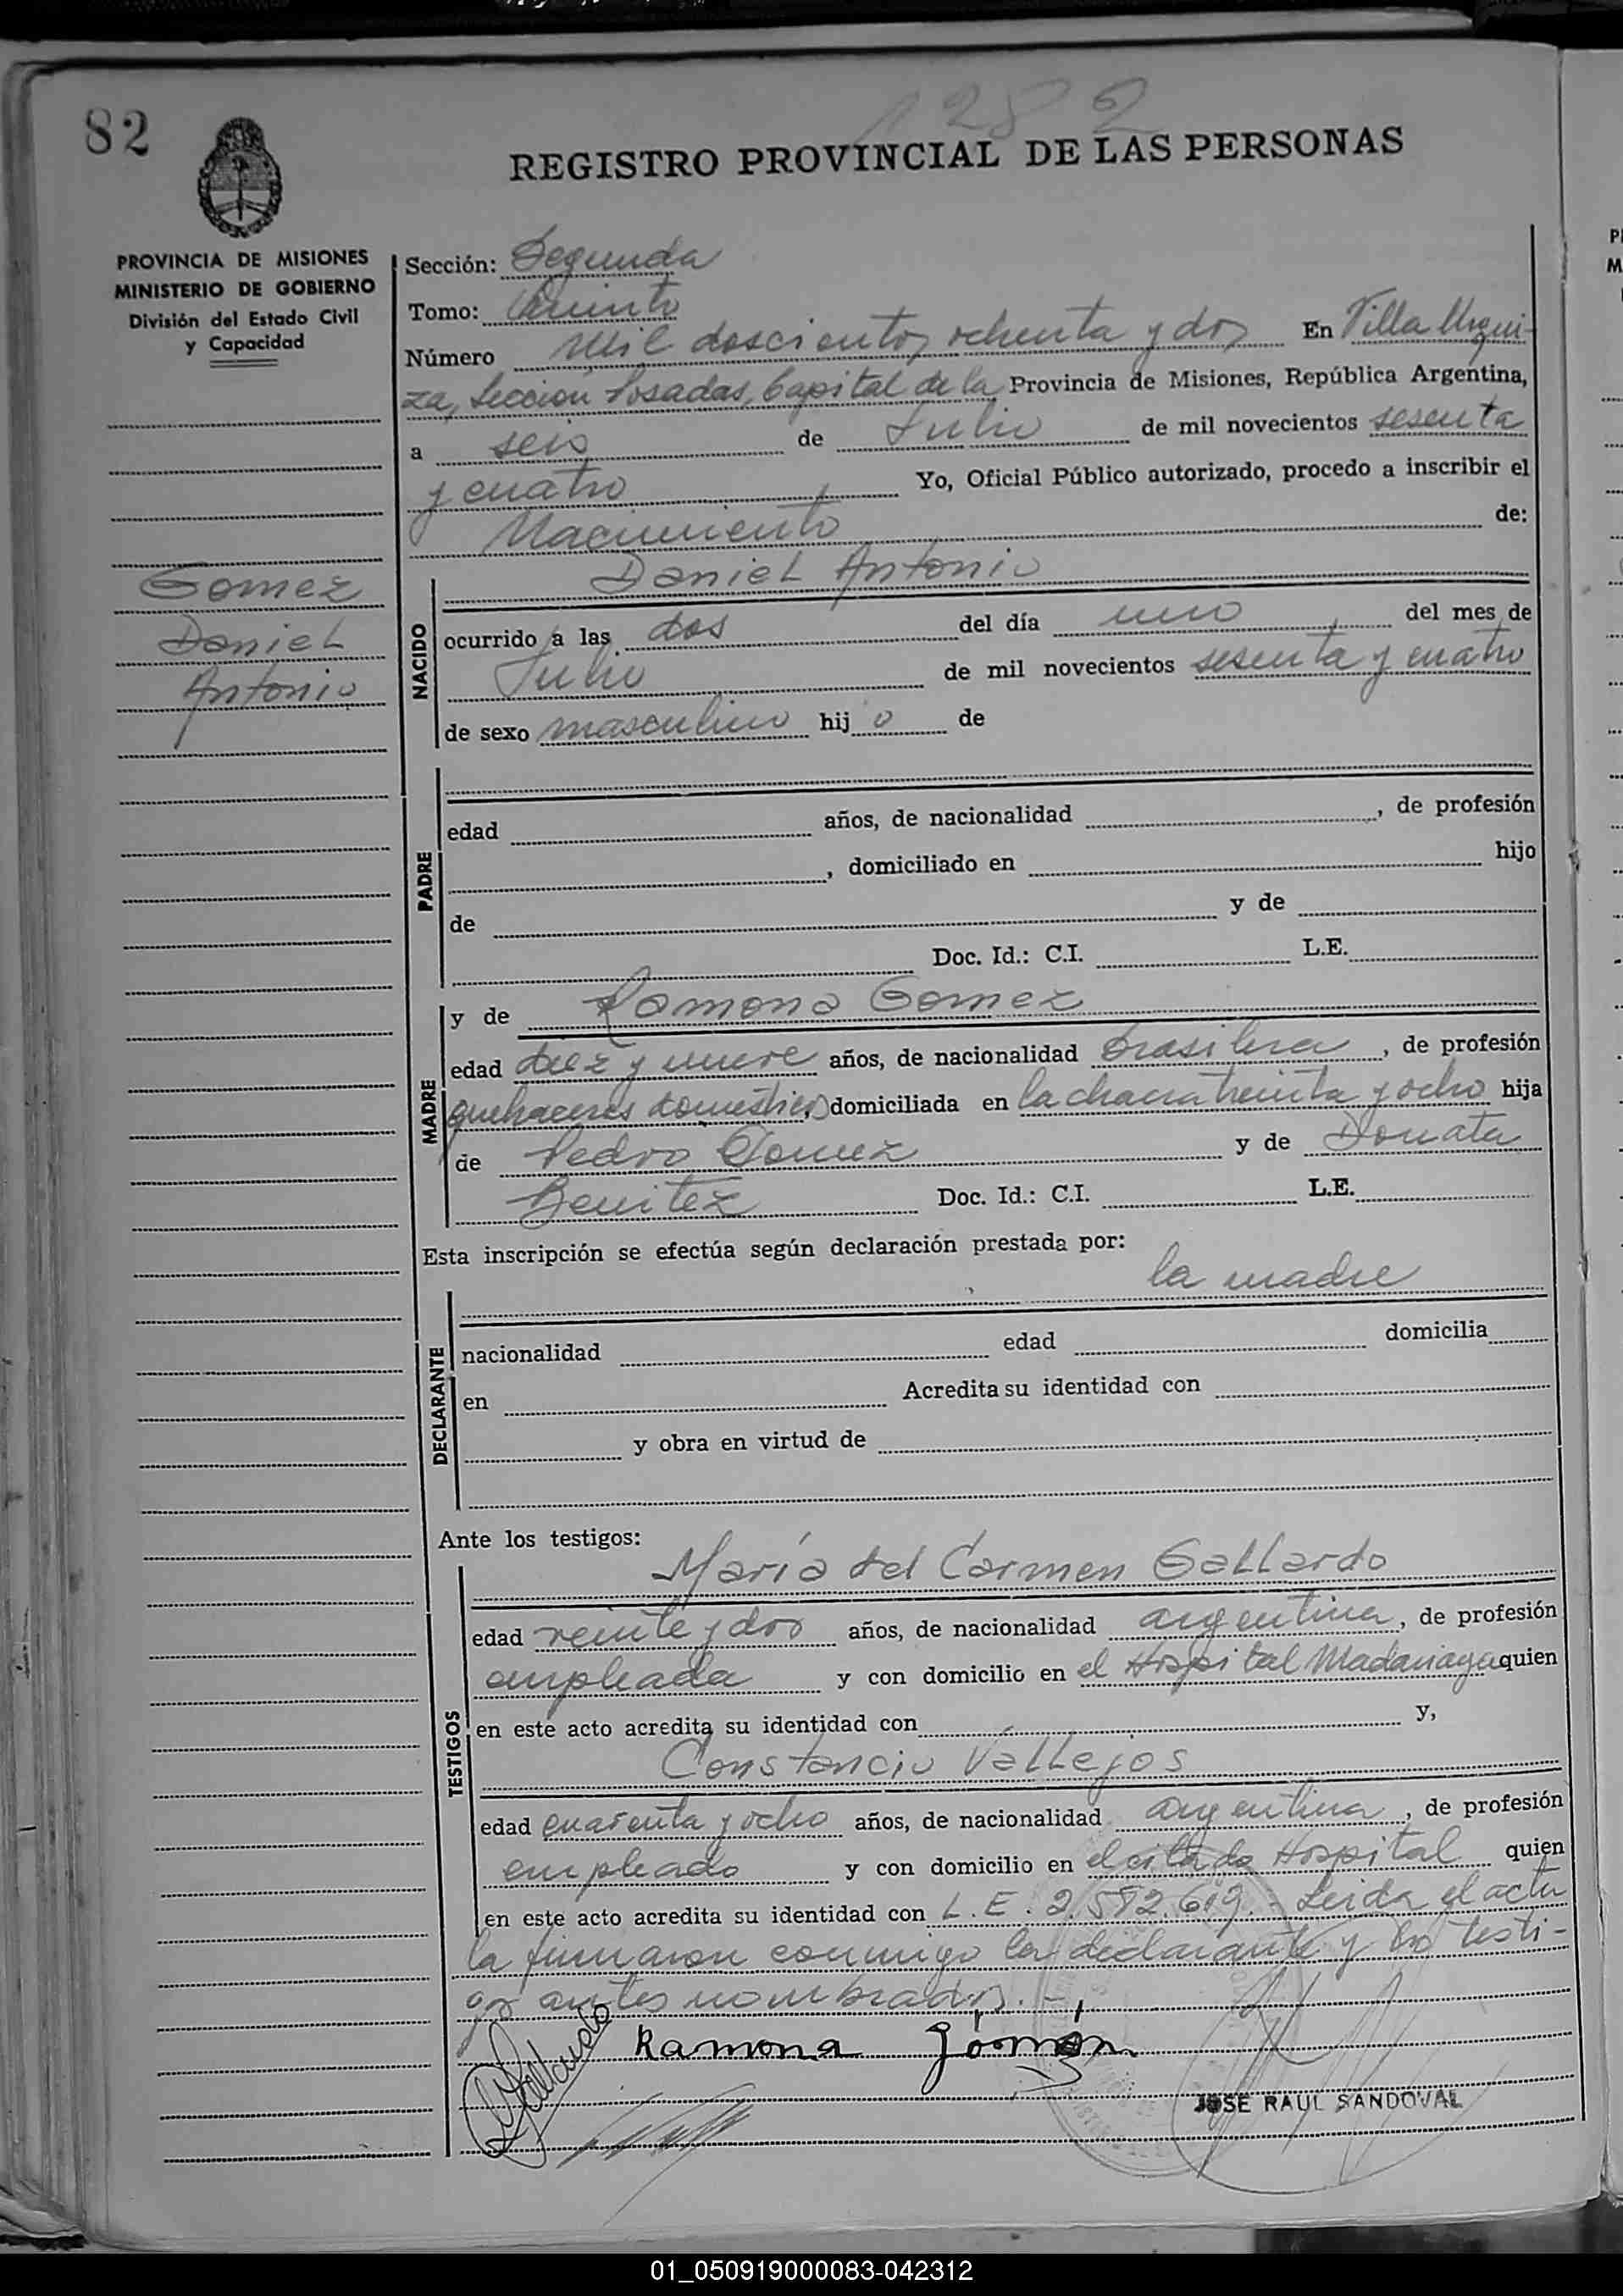 1282
82
REGISTRO PROVINCIAL DE LAS PERSONAS
PROVINCIA DE MISIONES
MINISTERIO DE GOBIERNO
División del Estado Civil
y Capacidad
Gomez
Daniel
Antonio
Sección: Segunda
Tomo: Quinto
Número mil doscientos ochenta y dos En Villa Urqui-
za, Sección Posadas, Capital de la Provincia de Misiones, República Argentina,
a seis de Julio de mil novecientos sesenta
y cuatro Yo, Oficial Público autorizado, procedo a inscribir el
Nacimiento de:
NACIDO
Daniel Antonio
ocurrido a las dos del día uno del mes de
Julio de mil novecientos sesenta y cuatro
de sexo masculino hij o de
PADRE
edad años, de nacionalidad , de profesión
, domiciliado en hijo
de y de
Doc. Id.: C.I. L.E.
MADRE
y de Ramona Gomez
edad diez y nueve años, de nacionalidad brasilera , de profesión
quehaceres domésticos, domiciliada en la chacra treinta y ocho hija
de Pedro Gomez y de Donata
Benitez Doc. Id.: C.I. L.E.
Esta inscripción se efectúa según declaración prestada por:
la madre
DECLARANTE
nacionalidad edad domicilia
en Acredita su identidad con
y obra en virtud de
Ante los testigos:
TESTIGOS
María del Carmen Gallardo
edad veinte y dos años, de nacionalidad argentina , de profesión
empleada y con domicilio en el Hospital Madariaga quien
en este acto acredita su identidad con y,
Constancio Vallejos
edad cuarenta y ocho años, de nacionalidad argentina , de profesión
empleado y con domicilio en el citado Hospital quien
en este acto acredita su identidad con L.E. 2.582.619.- Leida el acta
la firmaron conmigo la declarante y los testi-
gos antes nombrados.-
Gallardo Ramona Gómez
JOSE RAUL SANDOVAL
01_050919000083-042312